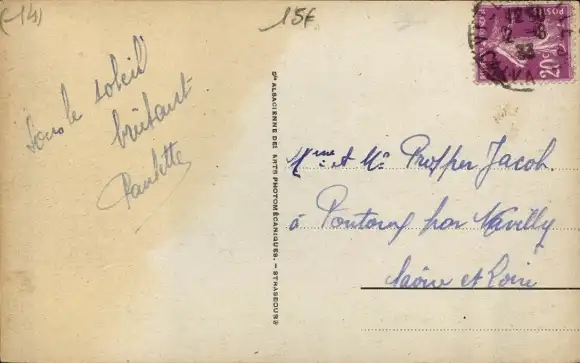 (14)
15F
Sous le soleil
brûlant
Paulette
Dté ALSACIENNE DES ARTS PHOTOMÉCANIQUES. - STRASBOURG
POSTES
20c
Mme et Mr Prosper Jacob
à Pontoux par Navilly
Saône et Loire